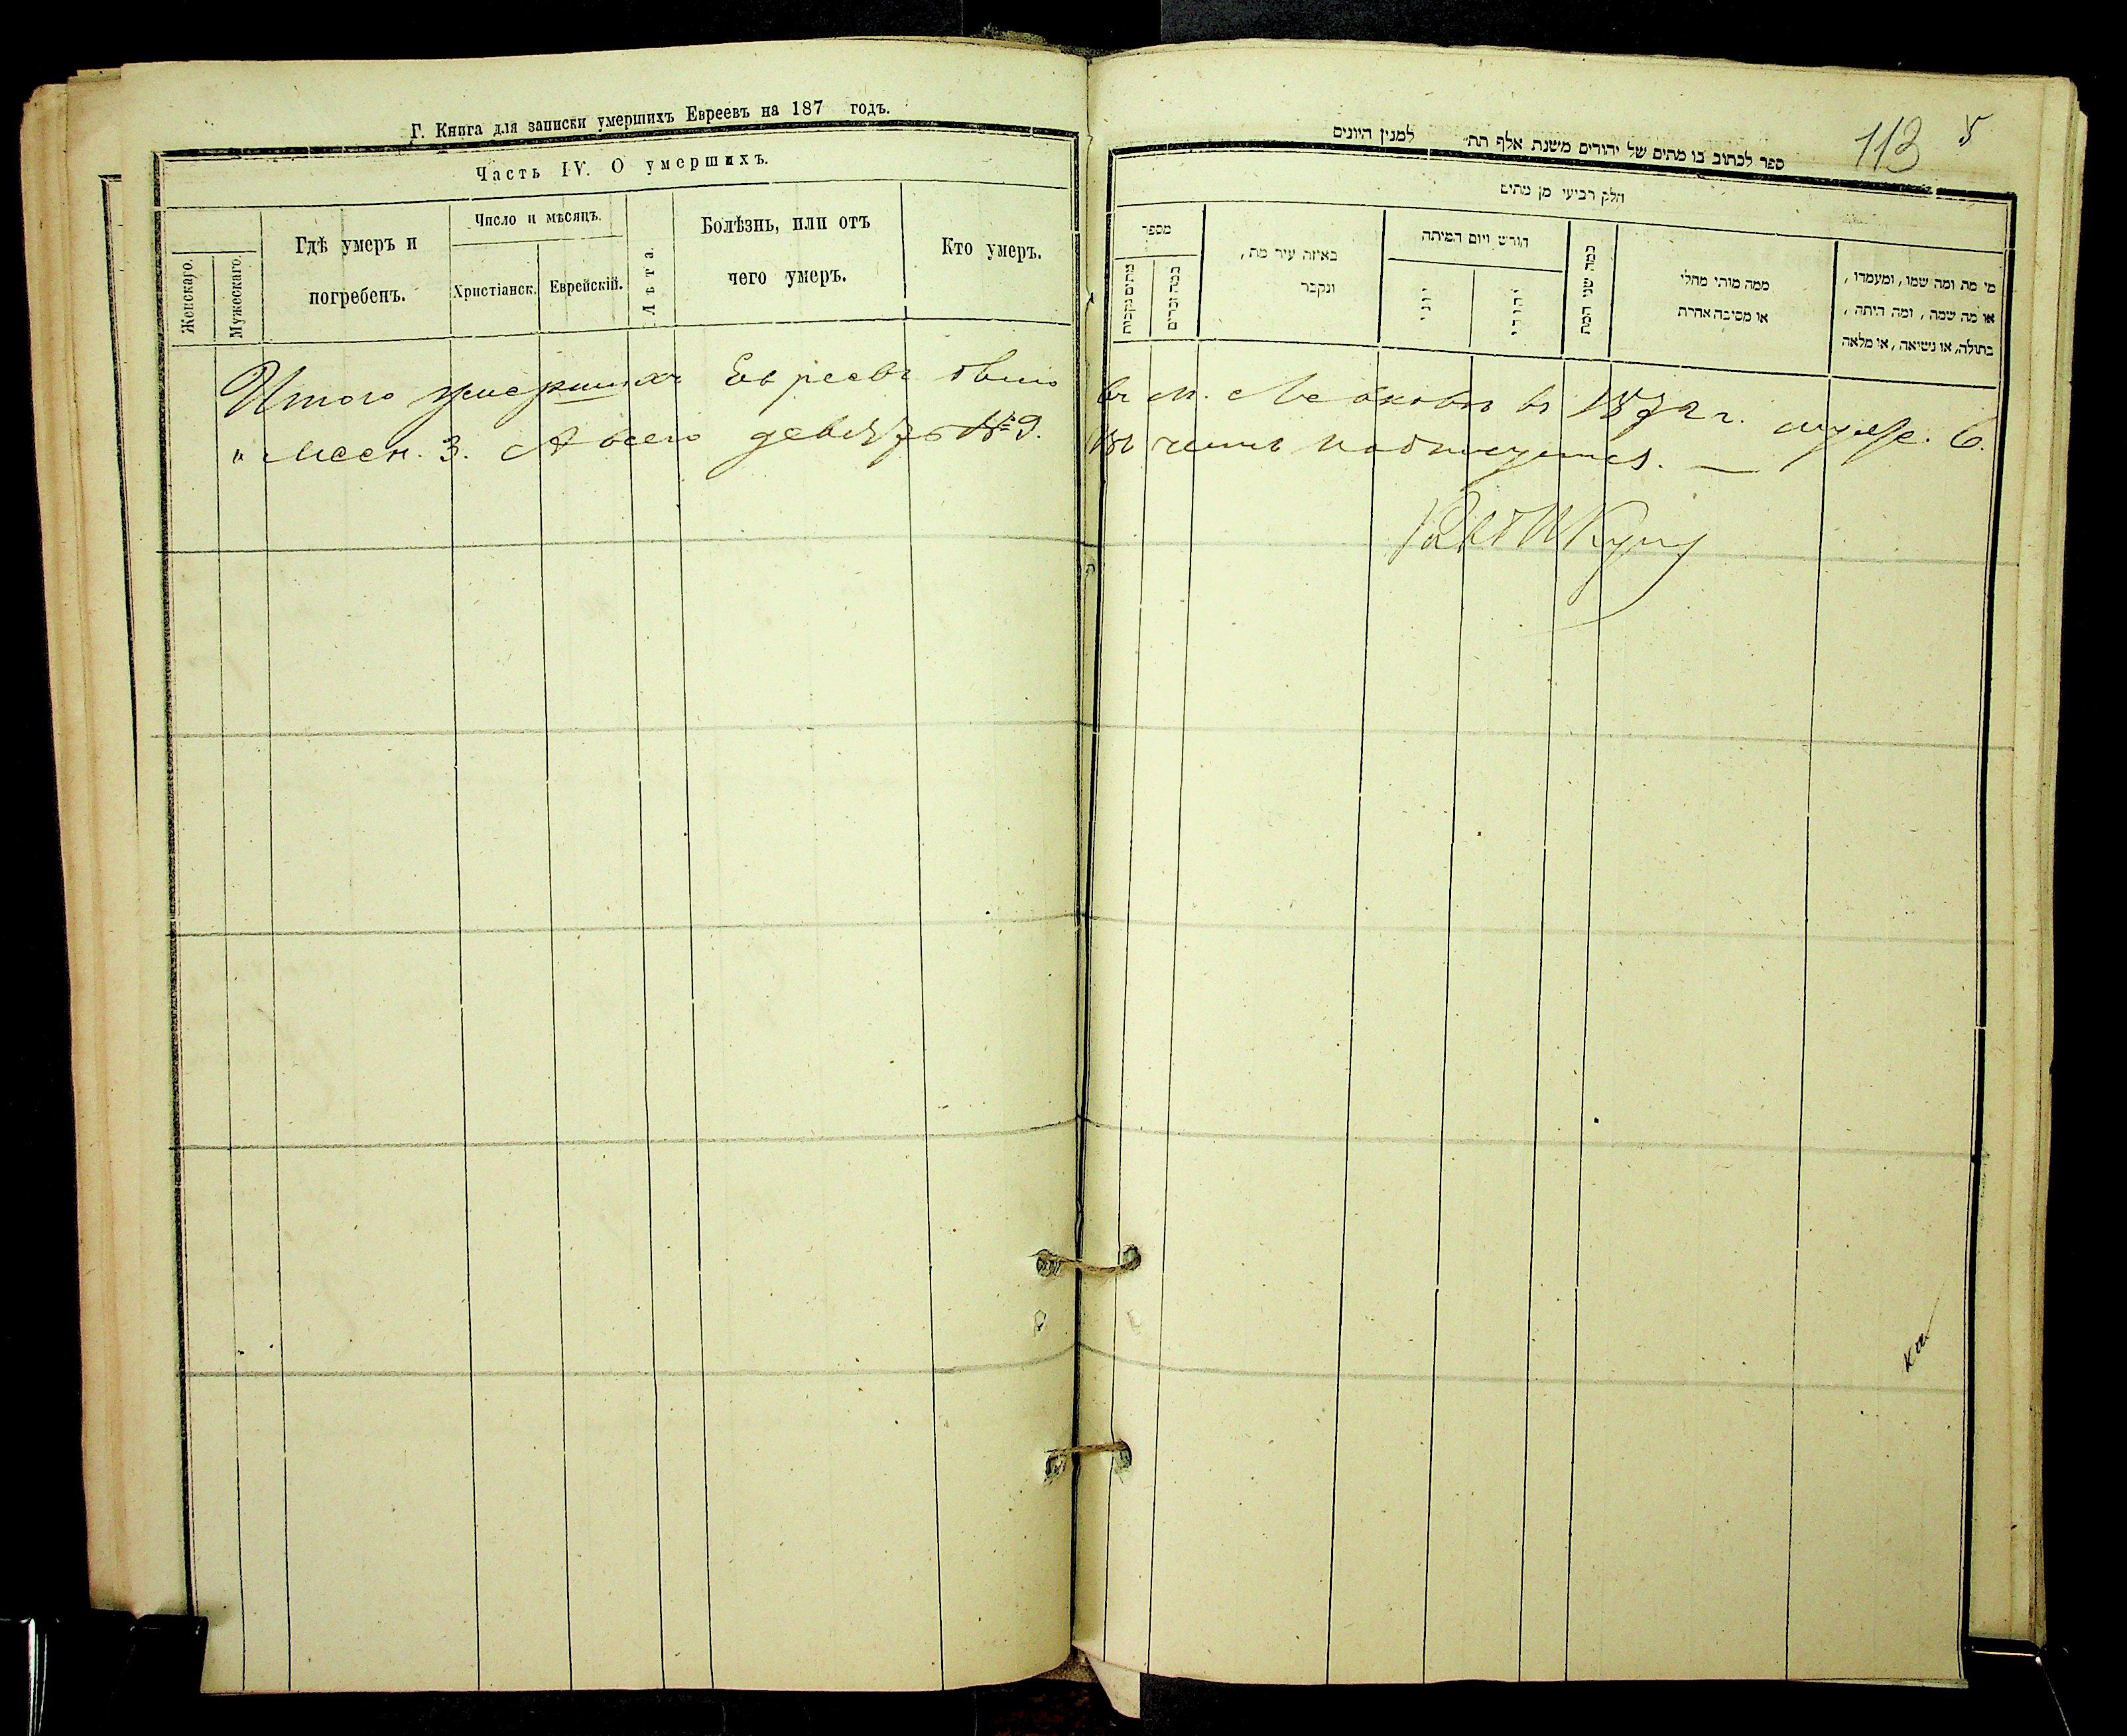 Г. Книга для записки умершихъ Евреевъ на 187 годъ.
Часть IV. О умершихъ.
Женскаго.
Мужескаго.
Гдѣ умеръ и
погребенъ.
Число и мѣсяцъ.
Христіанск.
Еврейскій.
Лѣта.
Болѣзнь, или отъ
чего умеръ.
Кто умеръ.
113 5
ספר לכתוב בו מתים של יהודים משנת אלף תת״ למנין היונים
חלק רביעי מן מתים
מספר
מתים נקבות
כמה זכרים
באיזה עיר מת,
ונקבר
חורש ויום המיתה
יוני
יהודי
כמה שני המת
ממה מותו מחלי
או מסיבה אחרת
מי מת ומה שמו, ומעמדו,
או מה שמה, ומה היתה,
בתולה, או נשואה, או מלאה
Итого умершихъ Евреевъ было въ м. въ 1872 г. муже. 6.
и женск. 3. А всего девять № 9. Въ чемъ подписуемся. —